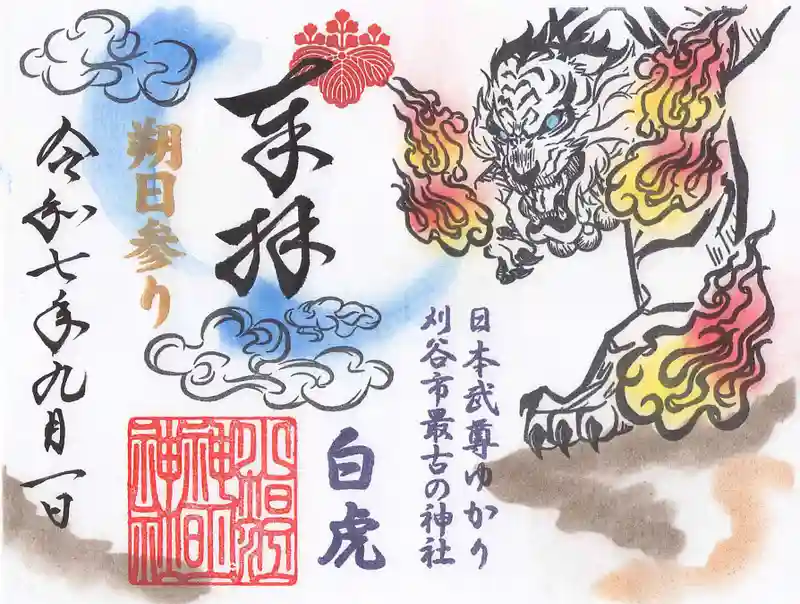 日本武尊ゆかり
刈谷市最古の神社
白虎
奉拝
小垣江
神明
神社
朔日参り
令和七年九月一日